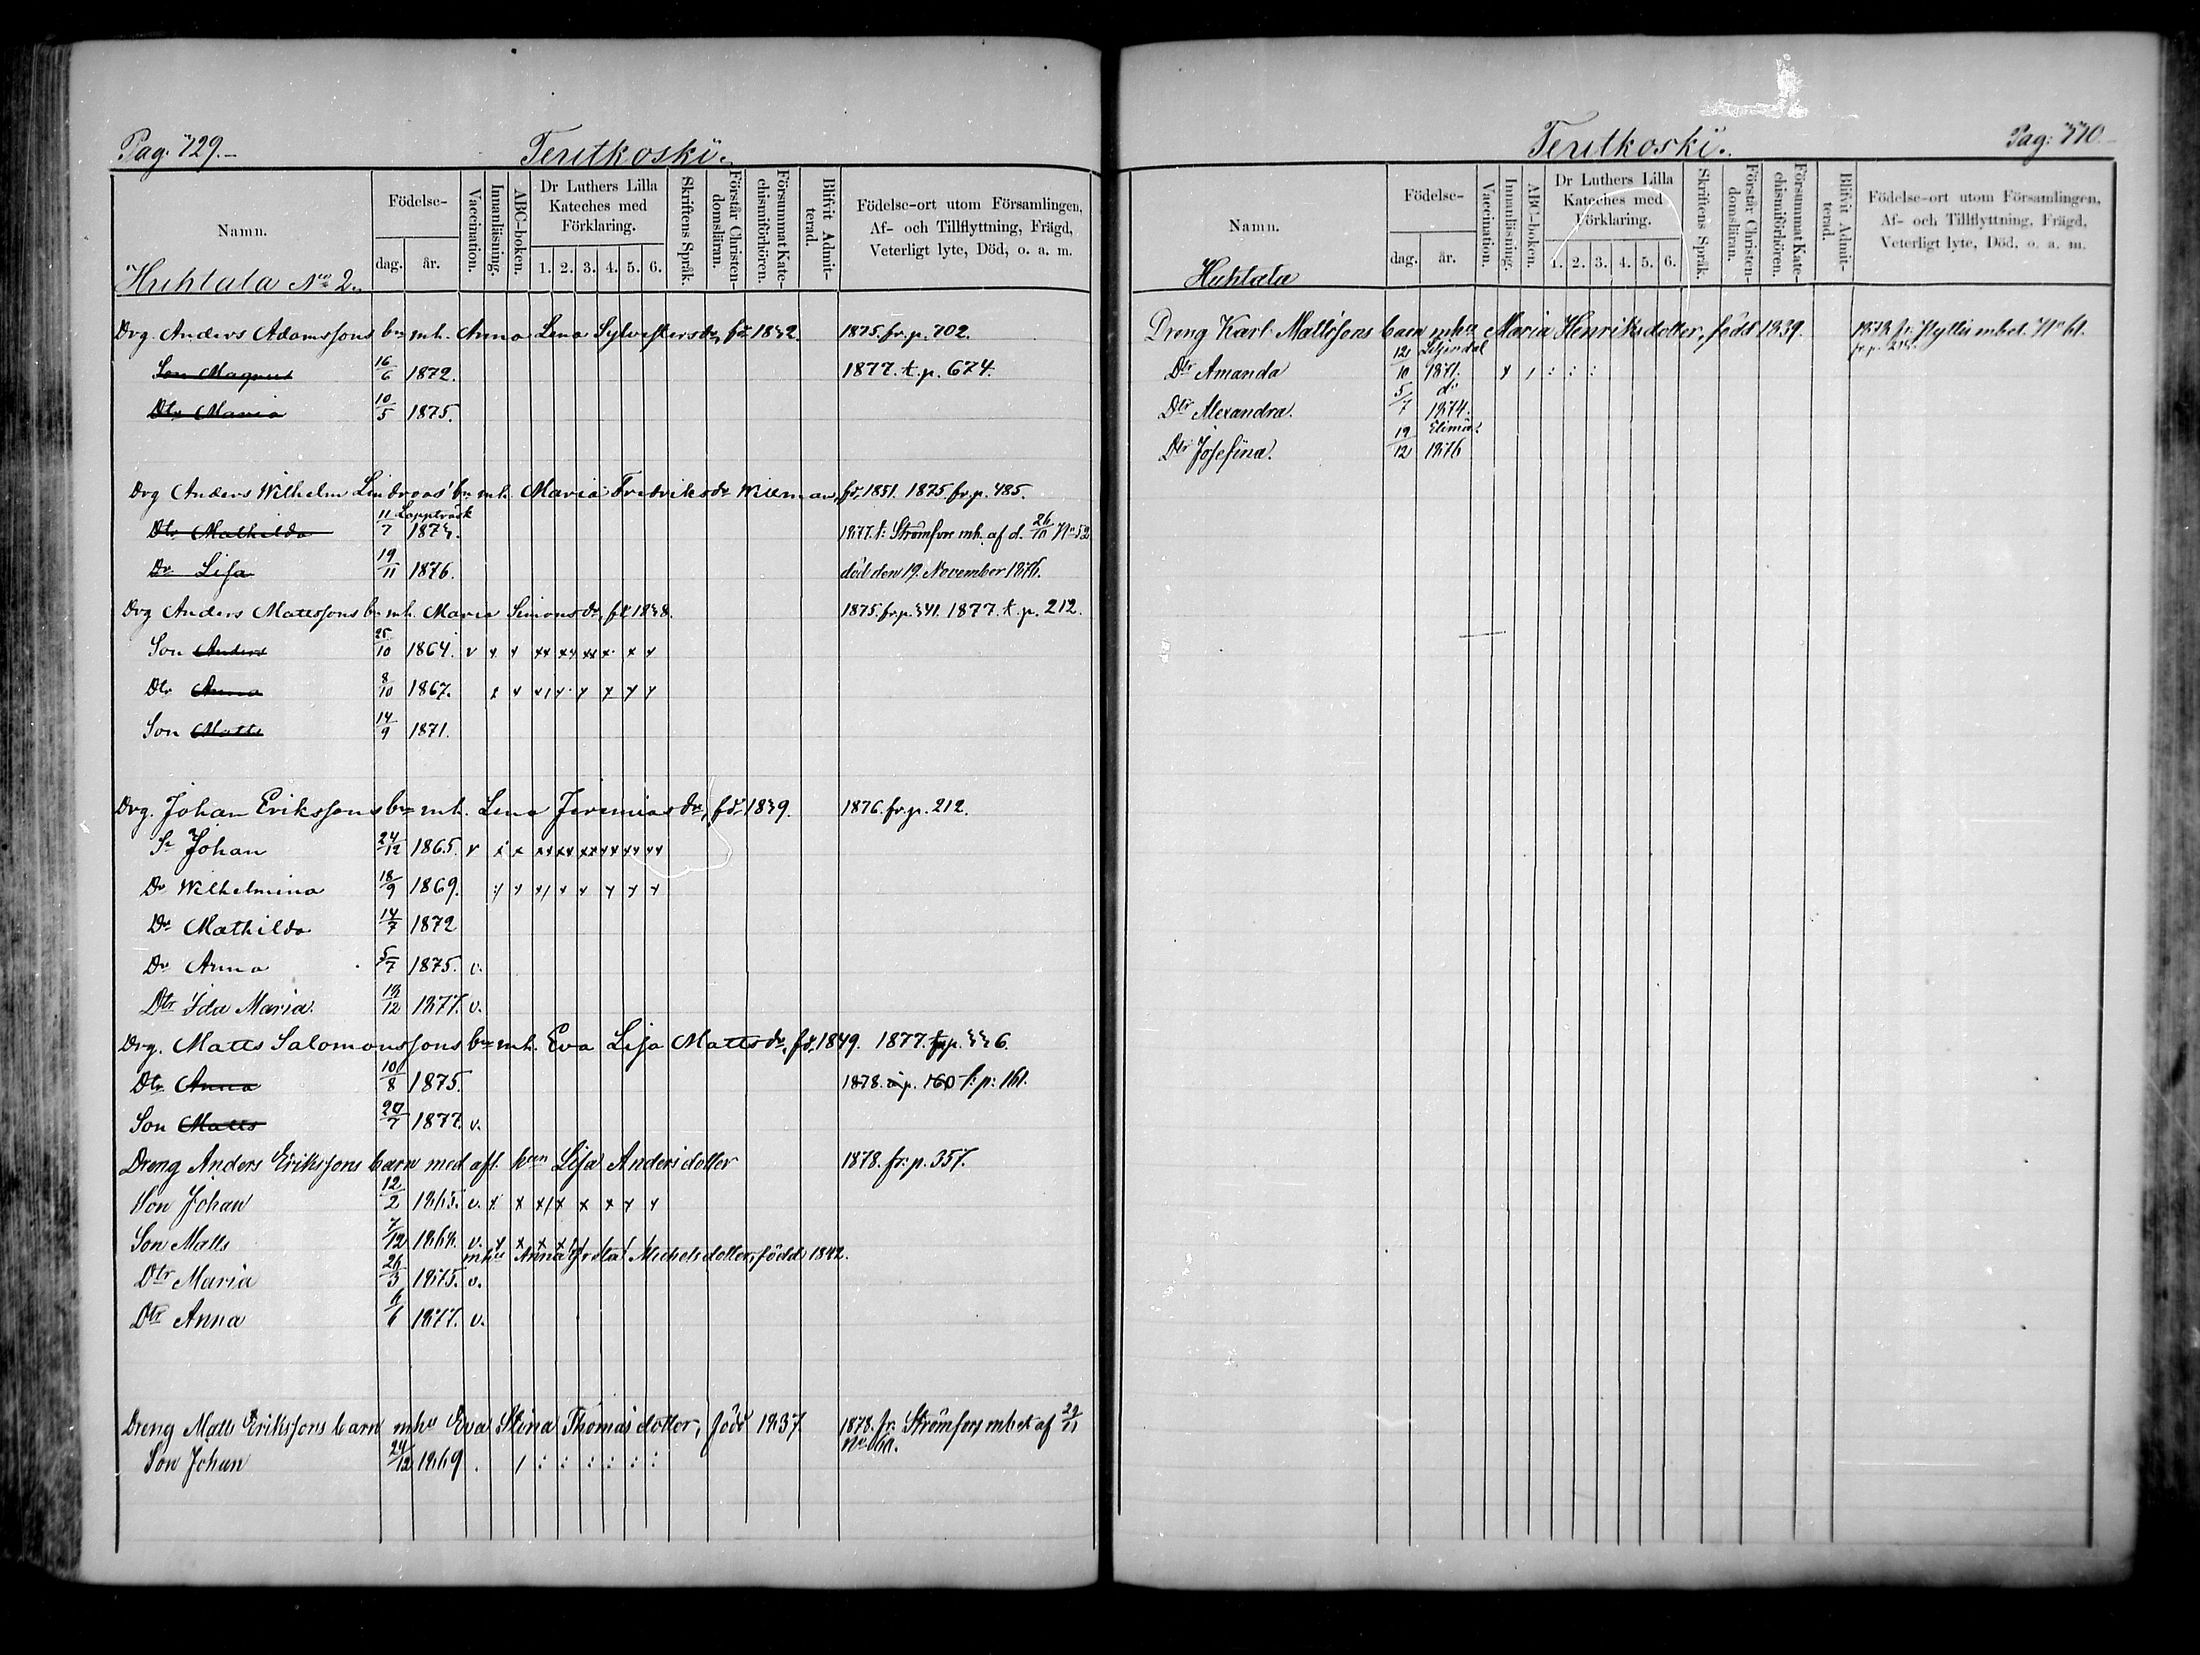 Pag: 729.
Teutkoski.
Namn.
Födelse-
dag.
år.
Vaccination.
Innanläsning.
ABC-boken.
Dr Luthers Lilla
Kateches med
Förklaring.
1. 2. 3. 4. 5. 6.
Skriftens Språk.
Förstår Christen-
domsläran.
Försummat Kate-
chismiförhören.
Blifvit Admit-
terad.
Födelse-ort utom Församlingen,
Af- och Tillflyttning, Frägd,
Veterligt lyte, Död, o. a. m.
Huhtala No 2.
Drg Anders Adamssons bn mh. Anna Lena Sylvestersdr, fd. 1832. 1875. fr. p. 702.
Son Magnus 16/6 1872. 1877. t. p. 674.
Dtr Maria 10/5 1875.
Drg Anders Wilhelm Lindroos' bn mh. Maria Fredriksdr Willman, fd. 1851. 1875 fr. p. 485.
Lappträsk
Dtr Mathilda 11/7 1873. 1877. t: Strömfors mh. af d. 26/10 No 52
Dr Lisa 19/11 1876. död den 19. November 1876.
Drg Anders Mattssons bn mh. Maria Simonsdr, fd. 1838. 1875. fr. p. 341. 1877. t. p. 212.
Son Anders 25/10 1864. v x x xx xx xx x x x
Dtr Anna 8/10 1867. x x x/ x x x x x
Son Matts 14/9 1871.
Drg. Johan Erikssons bn mh. Lena Jeremiasdr, fd. 1839. 1876. fr. p. 212.
Sn Johan 24/12 1865. v x x xx xx xx xx xx xx
Dr Wilhelmina 18/9 1869. x x x/ x x x x x
Dr Mathilda 14/7 1872
Dr Anna 5/7 1875. v.
Dtr Ida Maria. 13/12 1877. v.
Drg. Matts Salomonssons bn mh. Eva Lisa Mattsdr, fd. 1849. 1877. fr. p. 336.
Dtr Anna 10/8 1875. 1878. å p. 160 t: p: 161.
Son Matts 20/7 1877. v.
Dreng Anders Erikssons barn med afl. hun Lisa Andersdotter 1878. fr: p. 357.
Son Johan 12/2 1865. v. x x x/ x x x x x
Son Matts 7/12 1868. v. x x x x / / / /
mhu Anna Greta Michelsdotter, född 1842.
Dtr Maria 26/3 1875. v.
Dtr Anna 6/6 1877. v.
Dreng Matts Erikssons barn mhu Eva Stina Thomasdotter, född 1837. 1878. fr: Strömfors mhet af 29/11
No 60.
Son Johan 24/12 1869 . / : : : : : :
Teutkoski.
Pag: 730.
Namn.
Födelse-
dag.
år.
Vaccination.
Innanläsning.
ABC-boken.
Dr Luthers Lilla
Kateches med
Förklaring.
1. 2. 3. 4. 5. 6.
Skriftens Språk.
Förstår Christen-
domsläran.
Försummat Kate-
chismiförhören.
Blifvit Admit-
terad.
Födelse-ort utom Församlingen,
Af- och Tillflyttning, Frägd,
Veterligt lyte, Död, o. a. m.
Huhtala
Dreng Karl Mattssons barn mhu Maria Henriksdotter, född 1839. 1878. fr. Pyttis mhet. No 61.
fr. p. 215.
Liljendal
Dtr Amanda 12/10 1871. x / : : :
do
Dtr Alexandra. 5/7 1874.
Elimä
Dtr Josefina. 19/12 1876